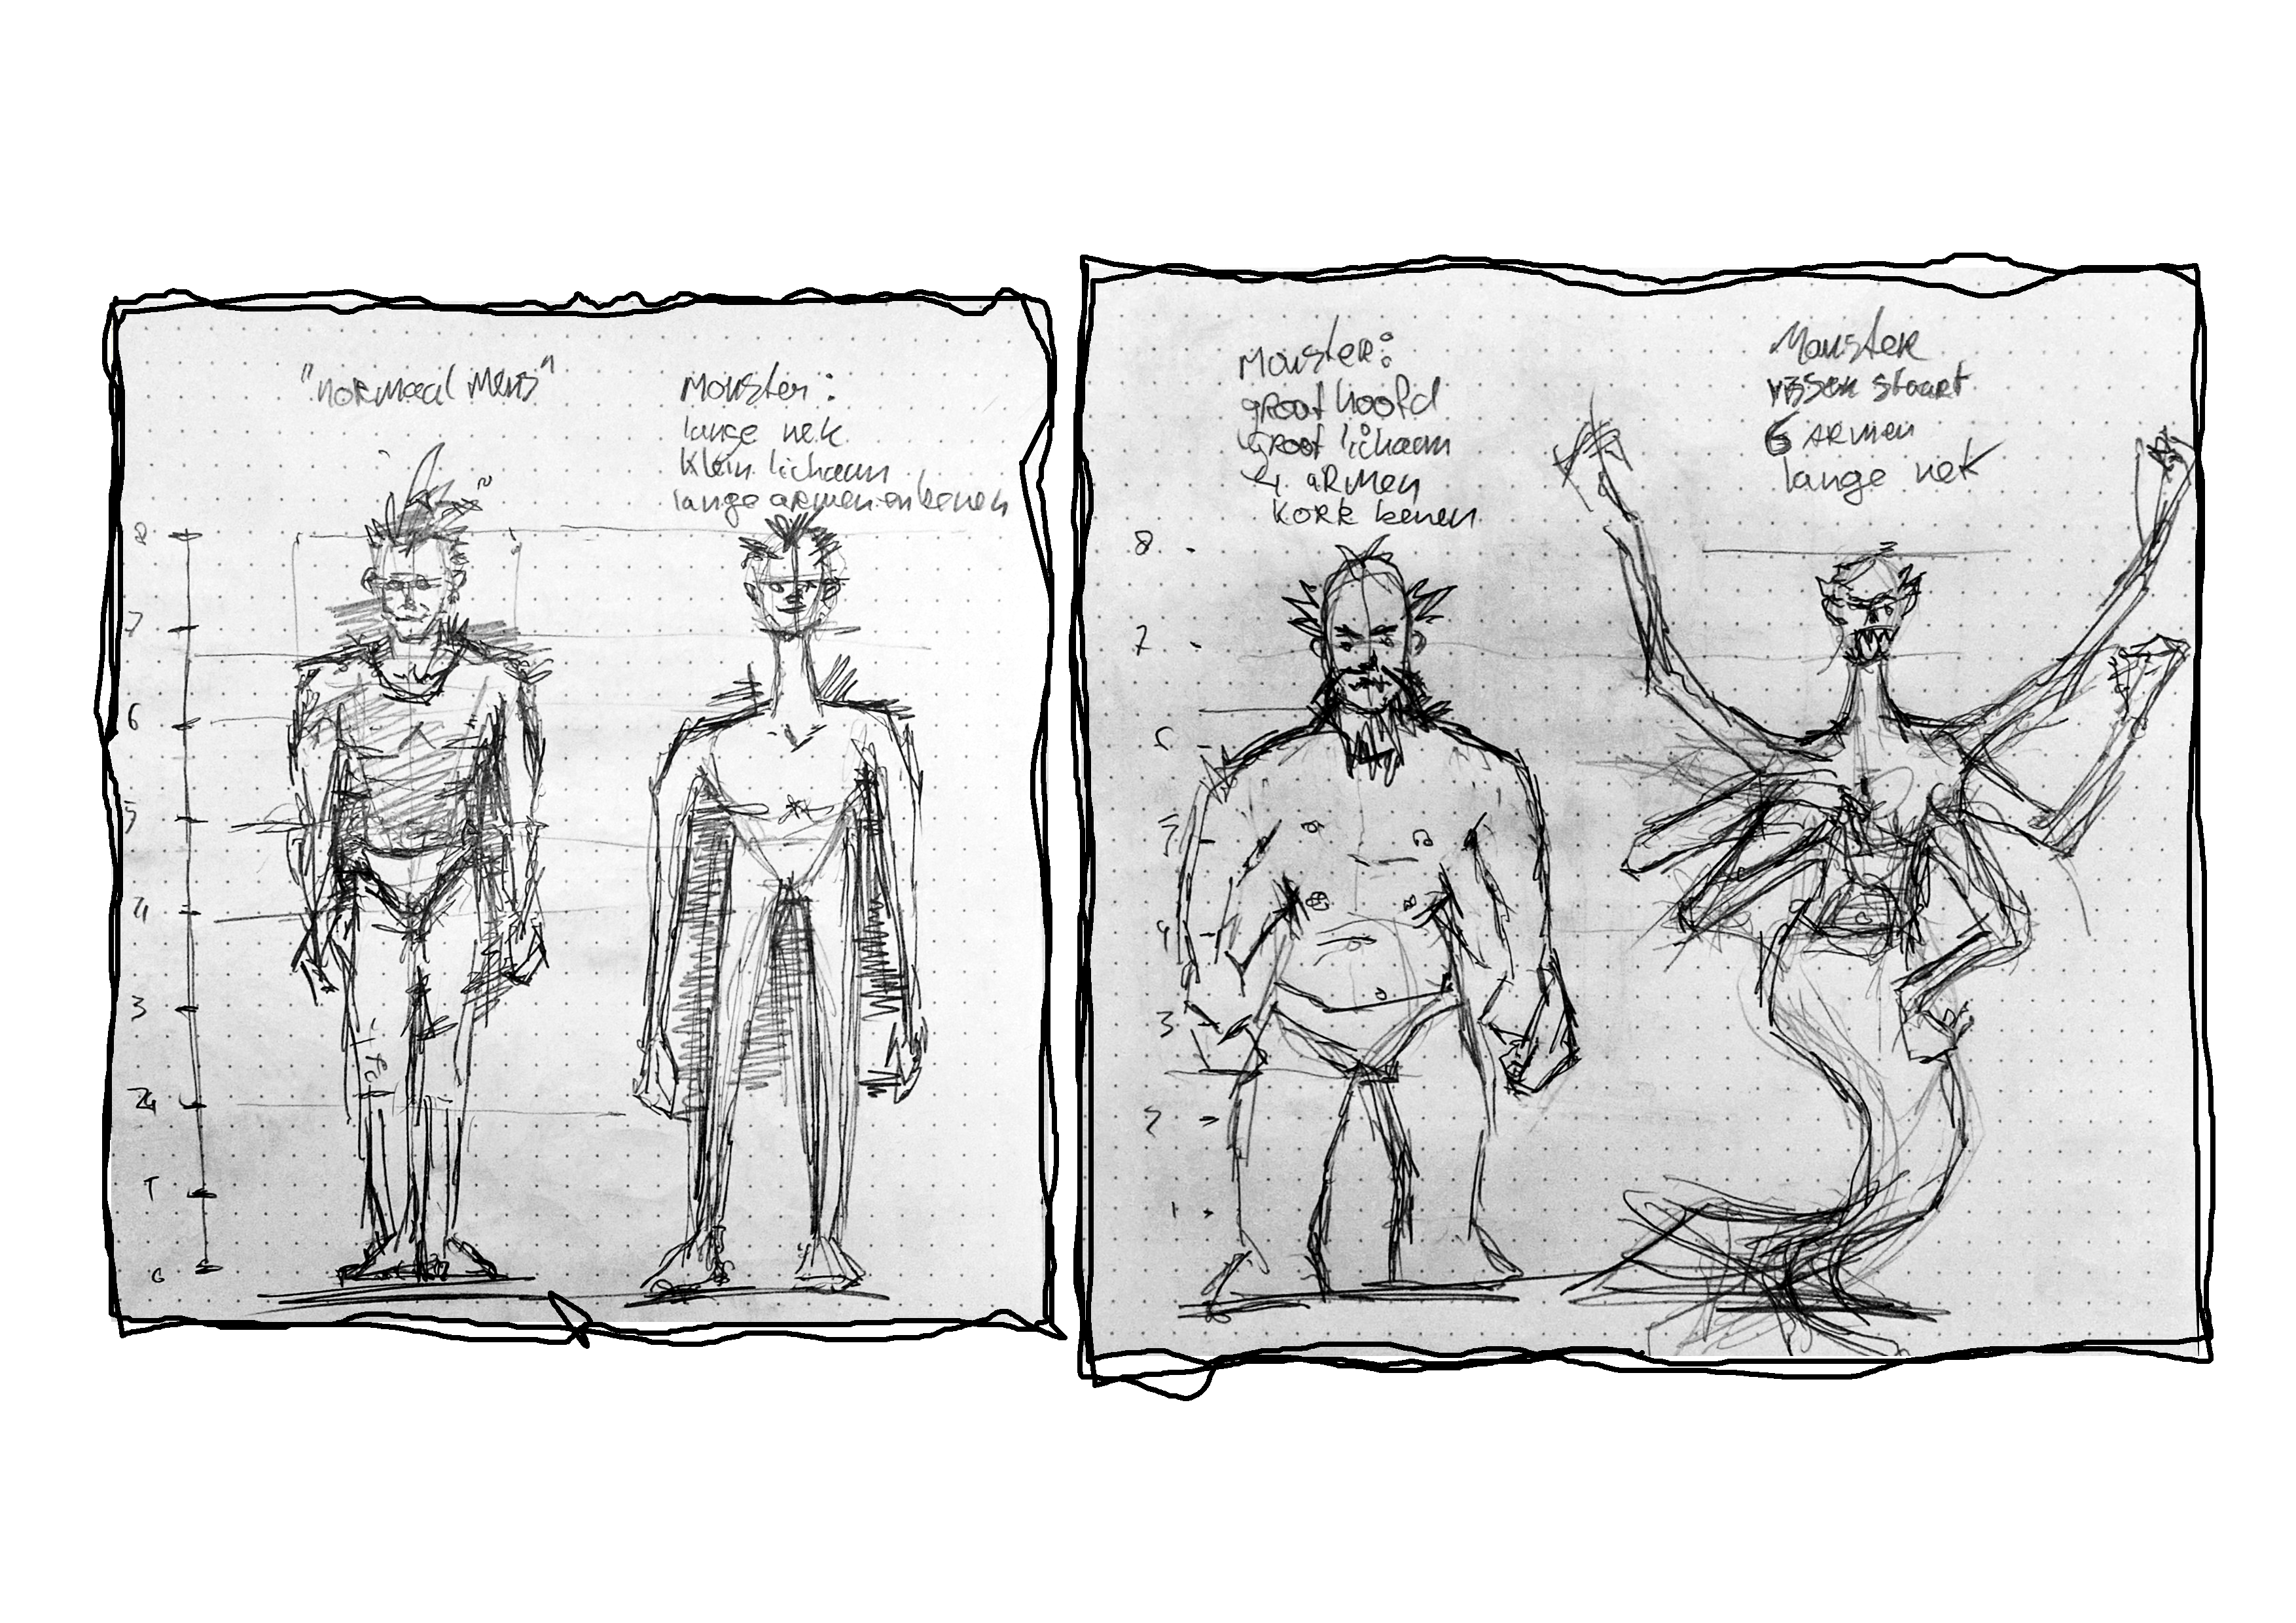 "normaal mens"
Monster:
lange nek
klein lichaam
lange armen en benen
8
7
6
5
4
3
2
1
0
Monster:
groot hoofd
groot lichaam
4 armen
korte benen
8
7
6
5
4
3
2
1
Monster
vissen staart
6 armen
lange nek